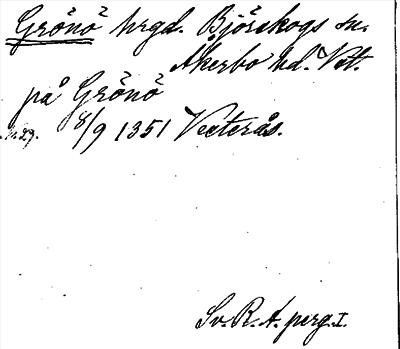 Grönö hrgd. Björskogs sn.
Åkerbo hd. Vstl.
på Grönö
8/9 1351 Vesterås.
Sv. R. A. perg. I.